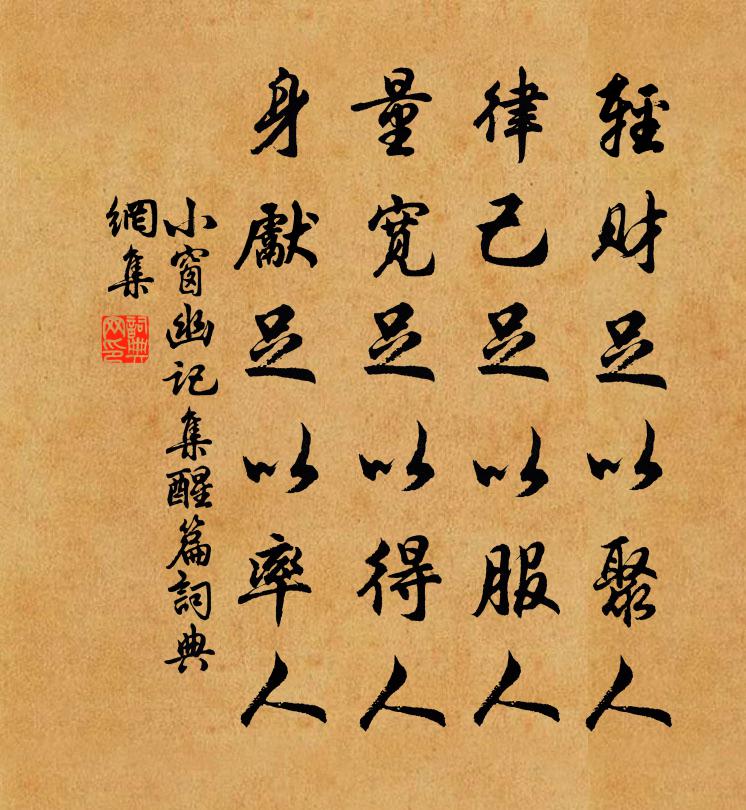 輕財足以聚人
律己足以服人
量寬足以得人
身獻足以率人
小窗幽记集醒篇詞典
網集
詞典
网印